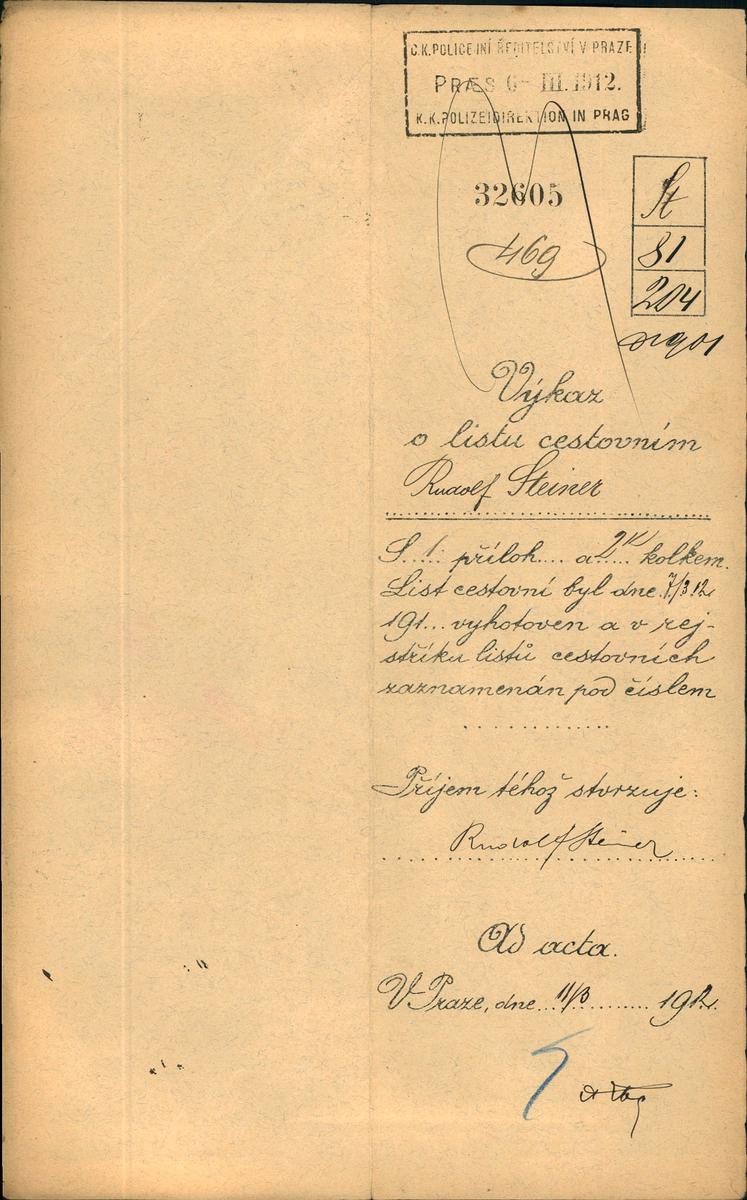 C.K. POLICEJNÍ ŘEDITELSTVÍ V PRAZE
PRÆS 6- III. 1912.
K.K. POLIZEIDIREKTION IN PRAG
32605
469
St
81
204
Výkaz
o listu cestovním
Rudolf Steiner
S..1. příloh.... a 2K kolkem.
List cestovní byl dne 7/3 12
191... vyhotoven a v rej-
stříku listů cestovních
zaznamenán pod číslem
Příjem téhož stvrzuje:
Rudolf Steiner
Ad acta.
V Praze, dne 11/3 1912.